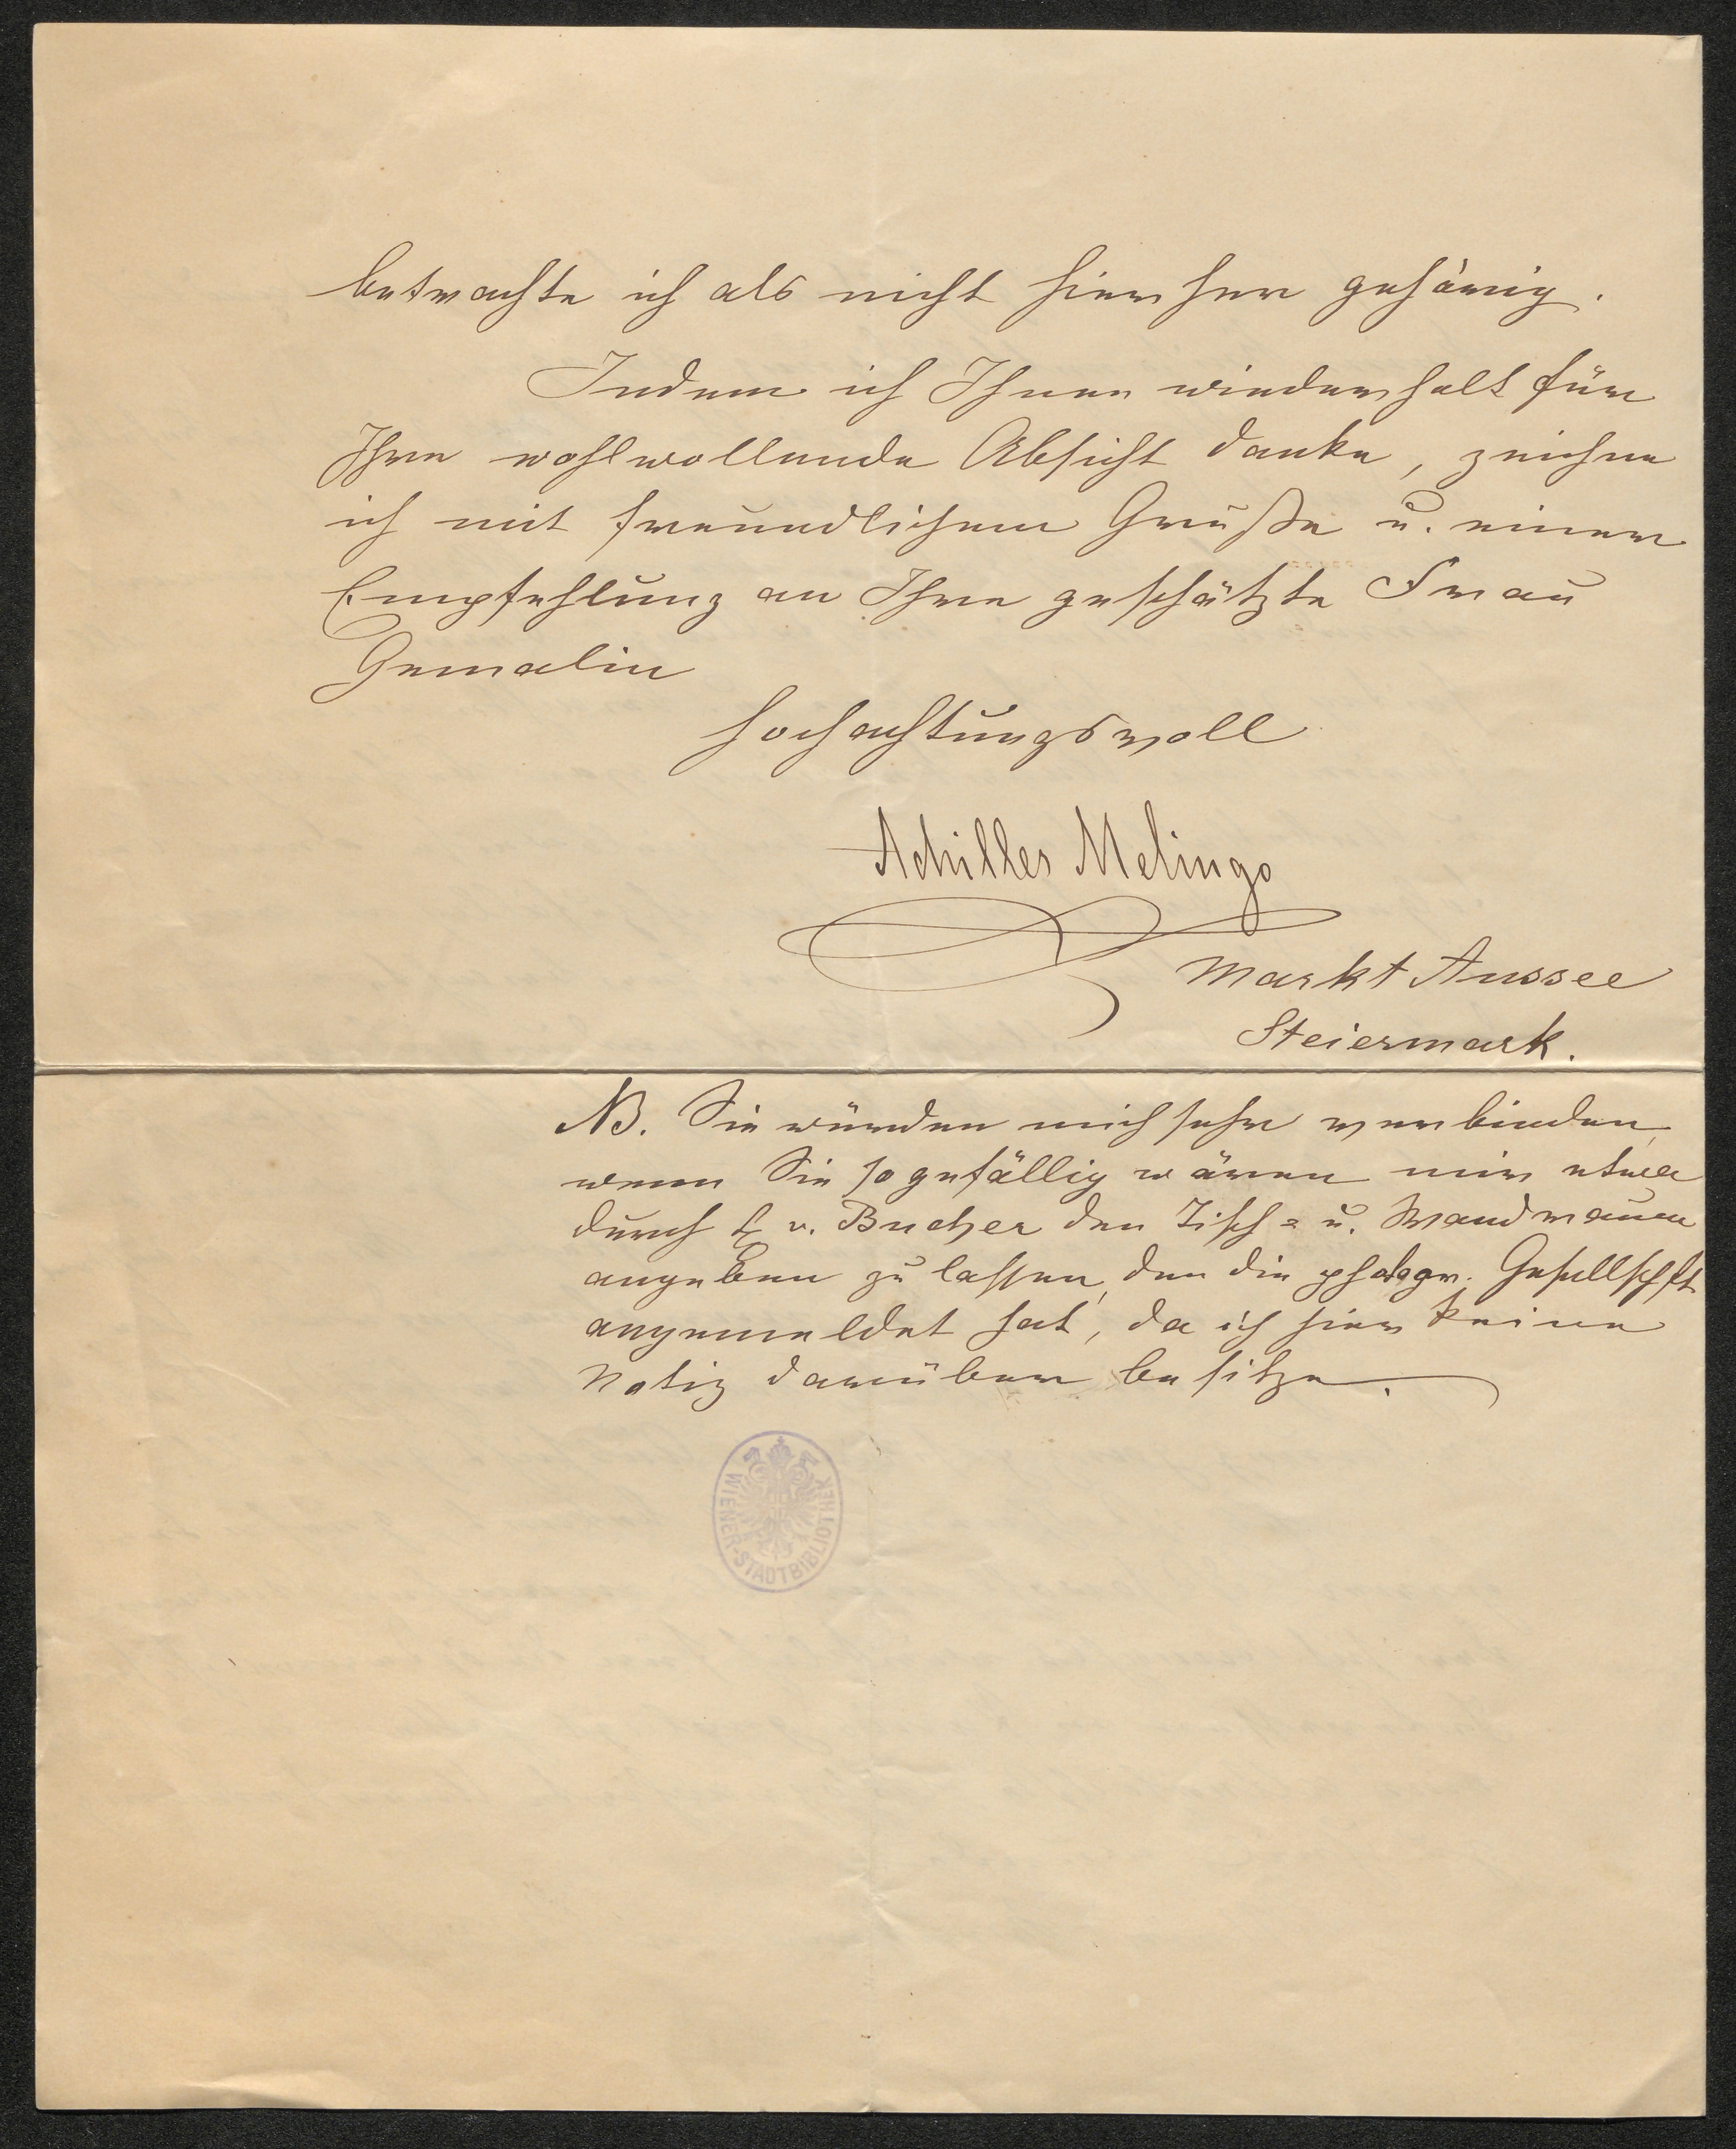 betrachte ich als nicht hierher gehörig.
Indem ich Ihnen wiederholt für
Ihre wohlwollende Absicht danke, zeichne
ich mit freundlichem Gruße u. einer
Empfehlung an Ihre geschätzte Frau
Gemalin
hochachtungsvoll
Achilles Melingo
Markt Aussee
Steiermark.
NB. Sie würden mich sehr verbinden,
wenn Sie so gefällig wären mir etwa
durch H v. Bucher den Tisch= u. Wandraum
angeben zu lassen, den die photogr. Gesellschft
angemeldet hat, da ich hier keine
Notiz darüber besitze.
WIENER-STADTBIBLIOTHEK